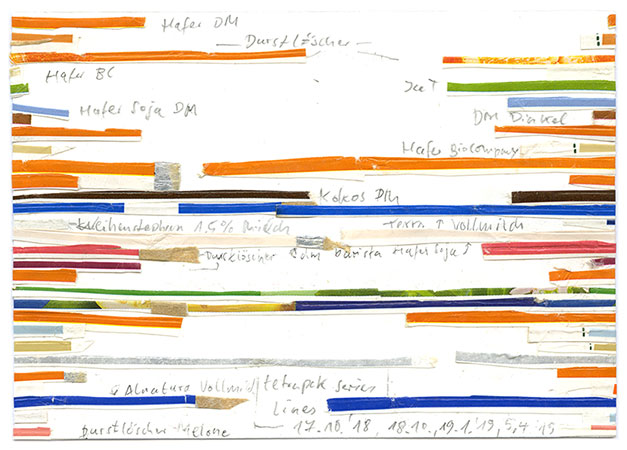 Hafer DM
Durstlöscher
Hafer BC
IceT
Hafer Soja DM
DM Dinkel
Hafer Biocompany
Kokos DM
Weihenstephan 1,5% Milch
Terra ↑ Vollmilch
Durstlöscher
barista Hafer Soja ↑
Alnatura Vollmilch
tetrapak series
Lines
17.10.'18, 18.10., 19.1.'19, 5,4 '19
Durstlöscher-Melone